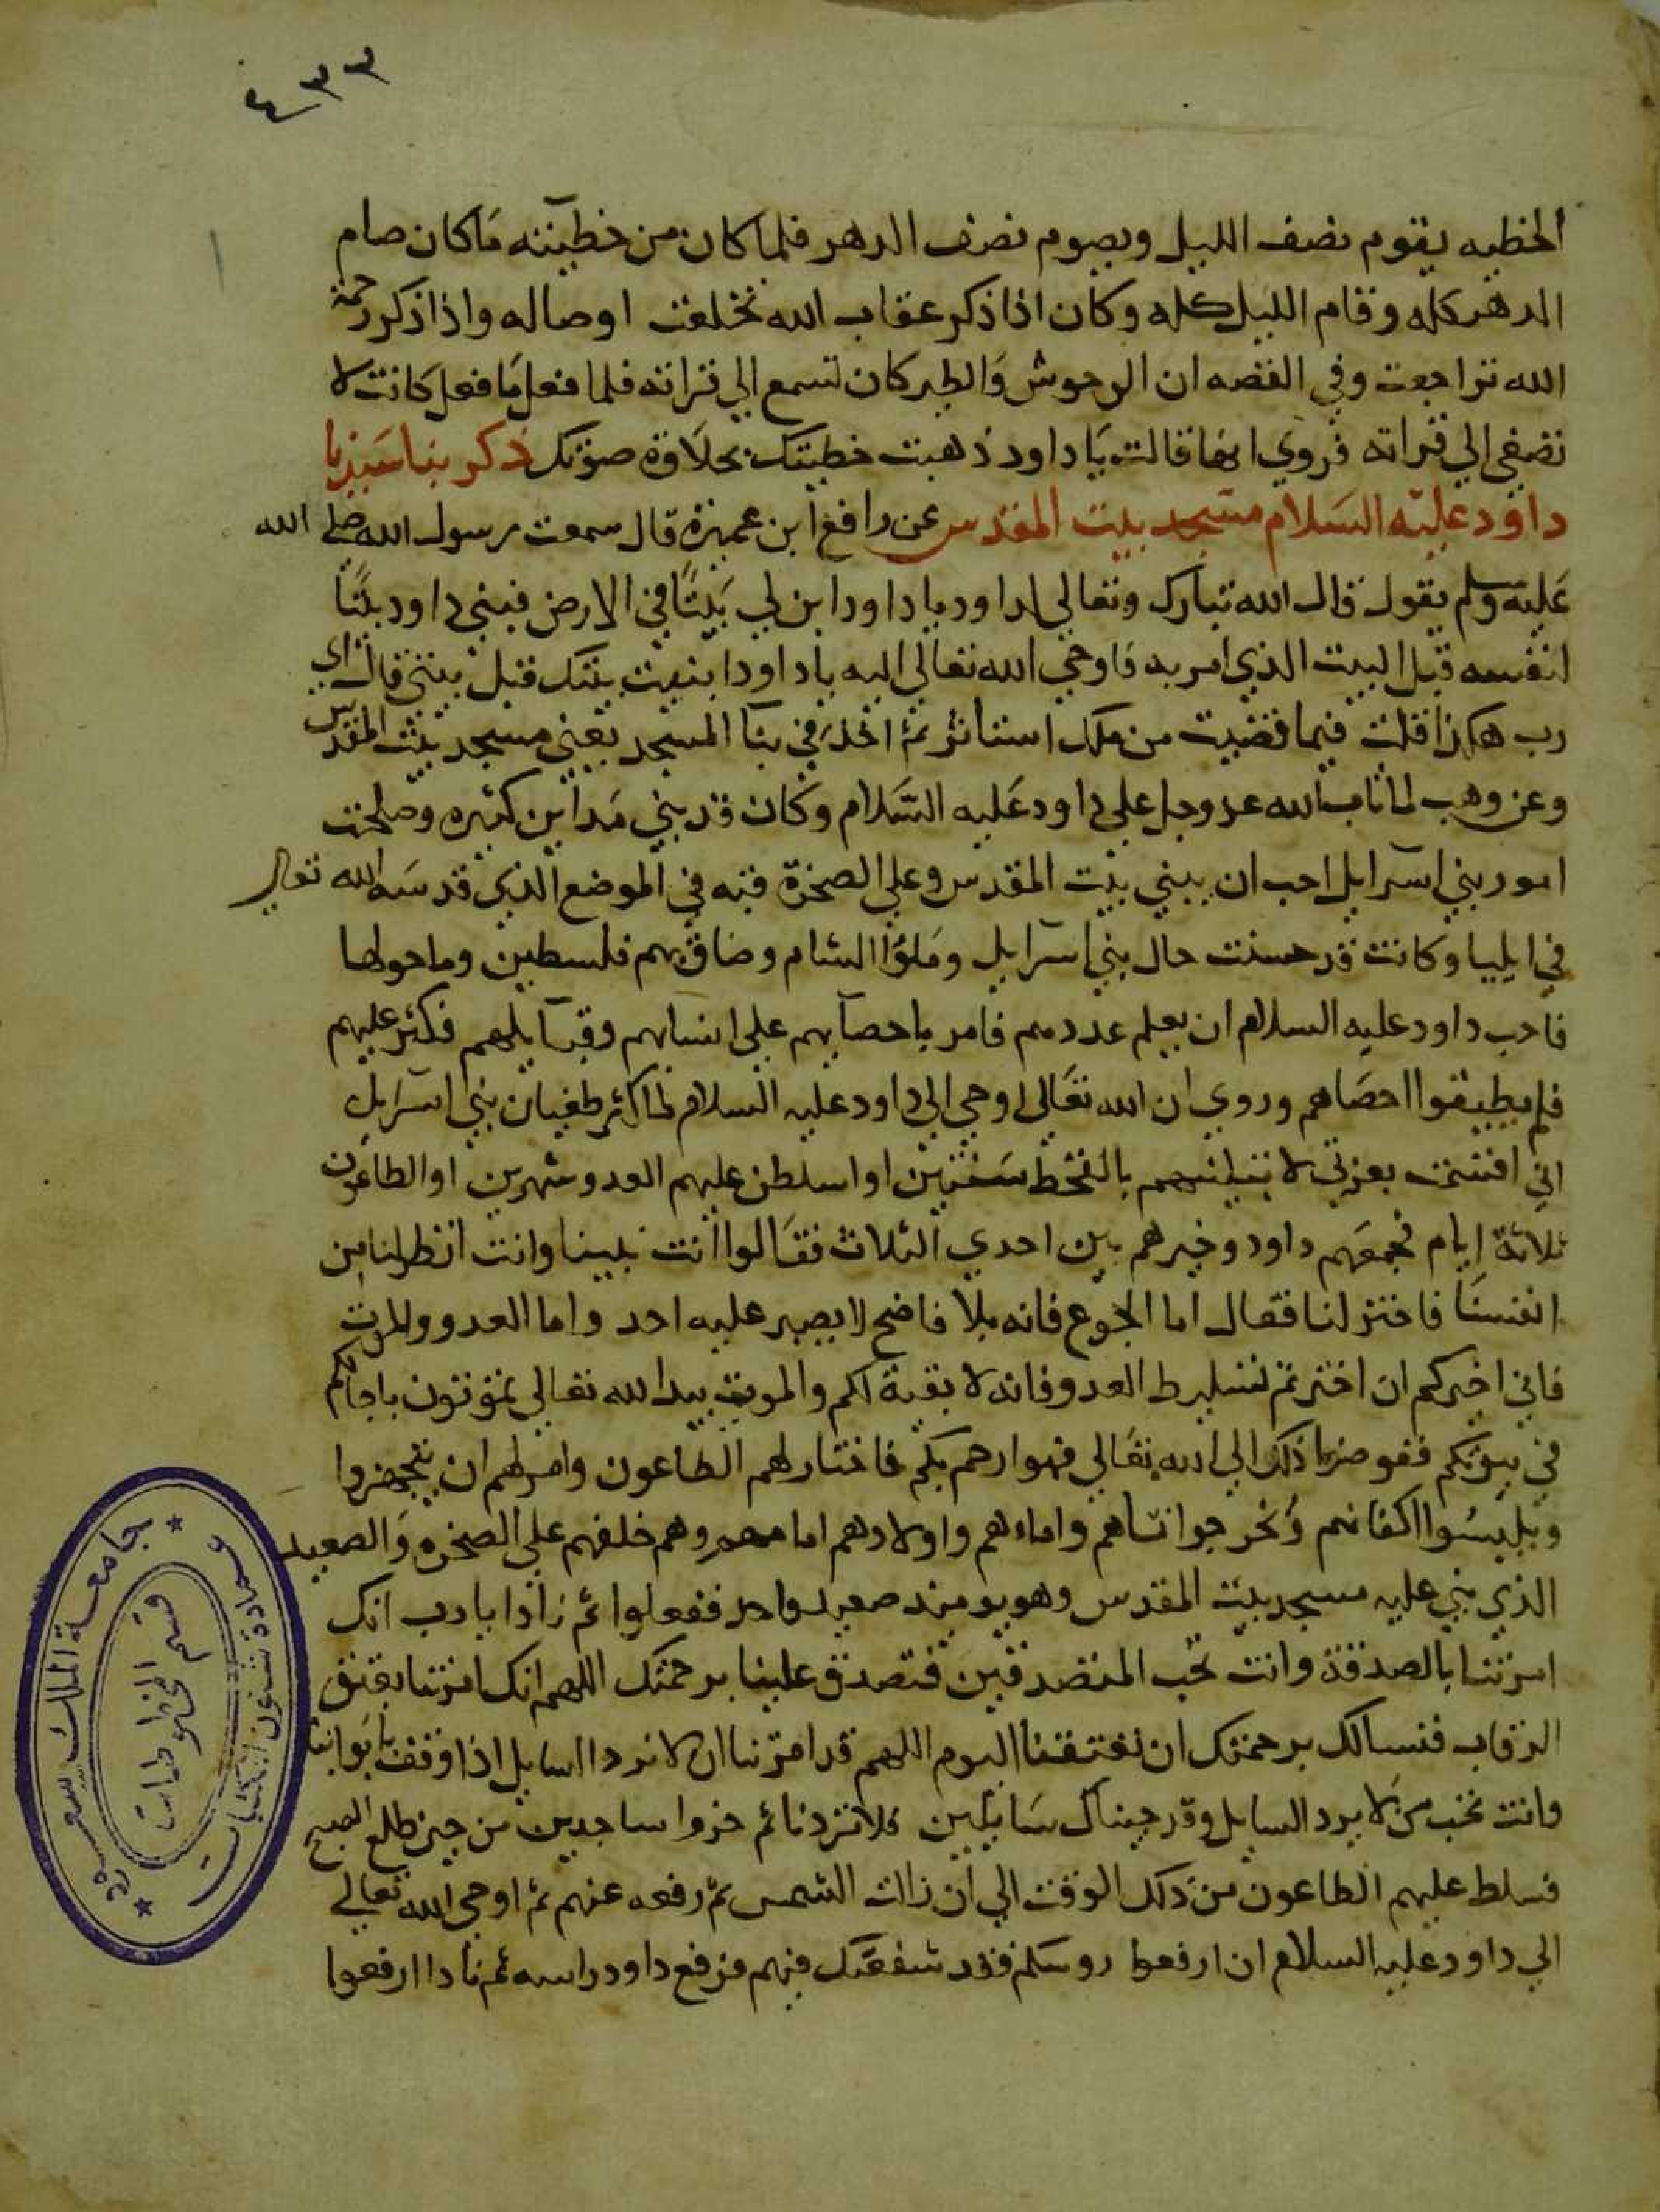 ٤٣٣
الخطيه يقوم نصف الليل ويصوم نصف الدهر فلما كان من خطيئته ماكان صام
الدهر كله وقام الليل كله وكان اذا ذكر عقاب الله تخلعت اوصاله واذا ذكر رحمة
الله تراجعت وفي القصه ان الوحوش والطير كان تسمع الي قراته فلما فعل ما فعل كانت لا
تصغي الي قراته فروي انها قالت يا داود ذهبت خطيتك بحلاوة صوتك ذكر بنا سيدنا
داود عليه السلام مسجد بيت المقدس عن رافع ابن عميرة قال سمعت رسول الله صلي الله
عليه وسلم يقول قال الله تبارك وتعالي لداود يا داود ابن لي بيتا في الارض فبني داود بيتا
لنفسه قبل البيت الذي امر به فاوحي الله تعالي اليه يا داود ابنيت بيتك قبل بيتي قال اي
رب هكذا قلت فيما قضيت من ملك استاثر ثم اخذ في بنا المسجد يعني مسجد بيت المقدس
وعن وهب لما تاب الله عز وجل علي داود عليه السلام وكان قد بني مداين كثيره وصلحت
امور بني اسرايل احب ان يبني بيت المقدس وعلي الصخرة قبه في الموضع الذي قدسه الله تعالي
في ايليا وكانت قد حسنت حال بني اسرايل وملؤا الشام وضاق بهم فلسطين وما حولها
فاحب داود عليه السلام ان يعلم عددهم فامر باحصايهم علي انسابهم وقبايلهم فكثر عليهم
فلم يطيقوا احصاهم وروي ان الله تعالي اوحي الي داود عليه السلام لما كثر طغيان بني اسرايل
اني اقسمت بعزتي لابتلينهم بالقحط سنتين او اسلطن عليهم العدو شهرين او الطاعون
ثلاثة ايام فجمعهم داود وخيرهم بين احدي الثلاث فقالوا انت نبينا وانت انظر لنا من
انفسنا فاختر لنا فقال اما الجوع فانه بلا فاضح لا يصبر عليه احد واما العدو والموت
فاني اخبركم ان اخترتم تسليط العدو فانه لا بقية لكم والموت بيد الله تعالي تموتون باجالكم
في بيوتكم ففوضوا ذلك الي الله تعالي فهو ارحم بكم فاختار لهم الطاعون وامرهم ان يتجهزوا
ويلبسوا اكفانهم ونخرجوا نساهم واماءهم واولادهم امامهم وهم خلفهم علي الصخره والصعيد
الذي بني عليه مسجد بيت المقدس وهو يوميذ صعيد واحد ففعلوا ثم نادا يا رب انك
امرتنا بالصدقة وانت تحب المتصدقين فتصدق علينا برحمتك اللهم انك امرتنا بعتق
الرقاب فنسالك برحمتك ان تعتقنا اليوم اللهم قد امرتنا ان لا نرد السايل اذا وقف بابوابنا
وانت تحب من لا يرد السايل وقد جيناك سايلين فلا تردنا ثم خروا ساجدين من حين طلع الصبح
فسلط عليهم الطاعون من ذلك الوقت الي ان زالت الشمس ثم رفعه عنهم ثم اوحي الله تعالي
الي داود عليه السلام ان ارفعوا روسكم فقد شفعتك فيهم فرفع داود راسه ثم نادا ارفعوا
جامعة الملك سعود
عمادة شئون المكتبات
قسم المخطوطات